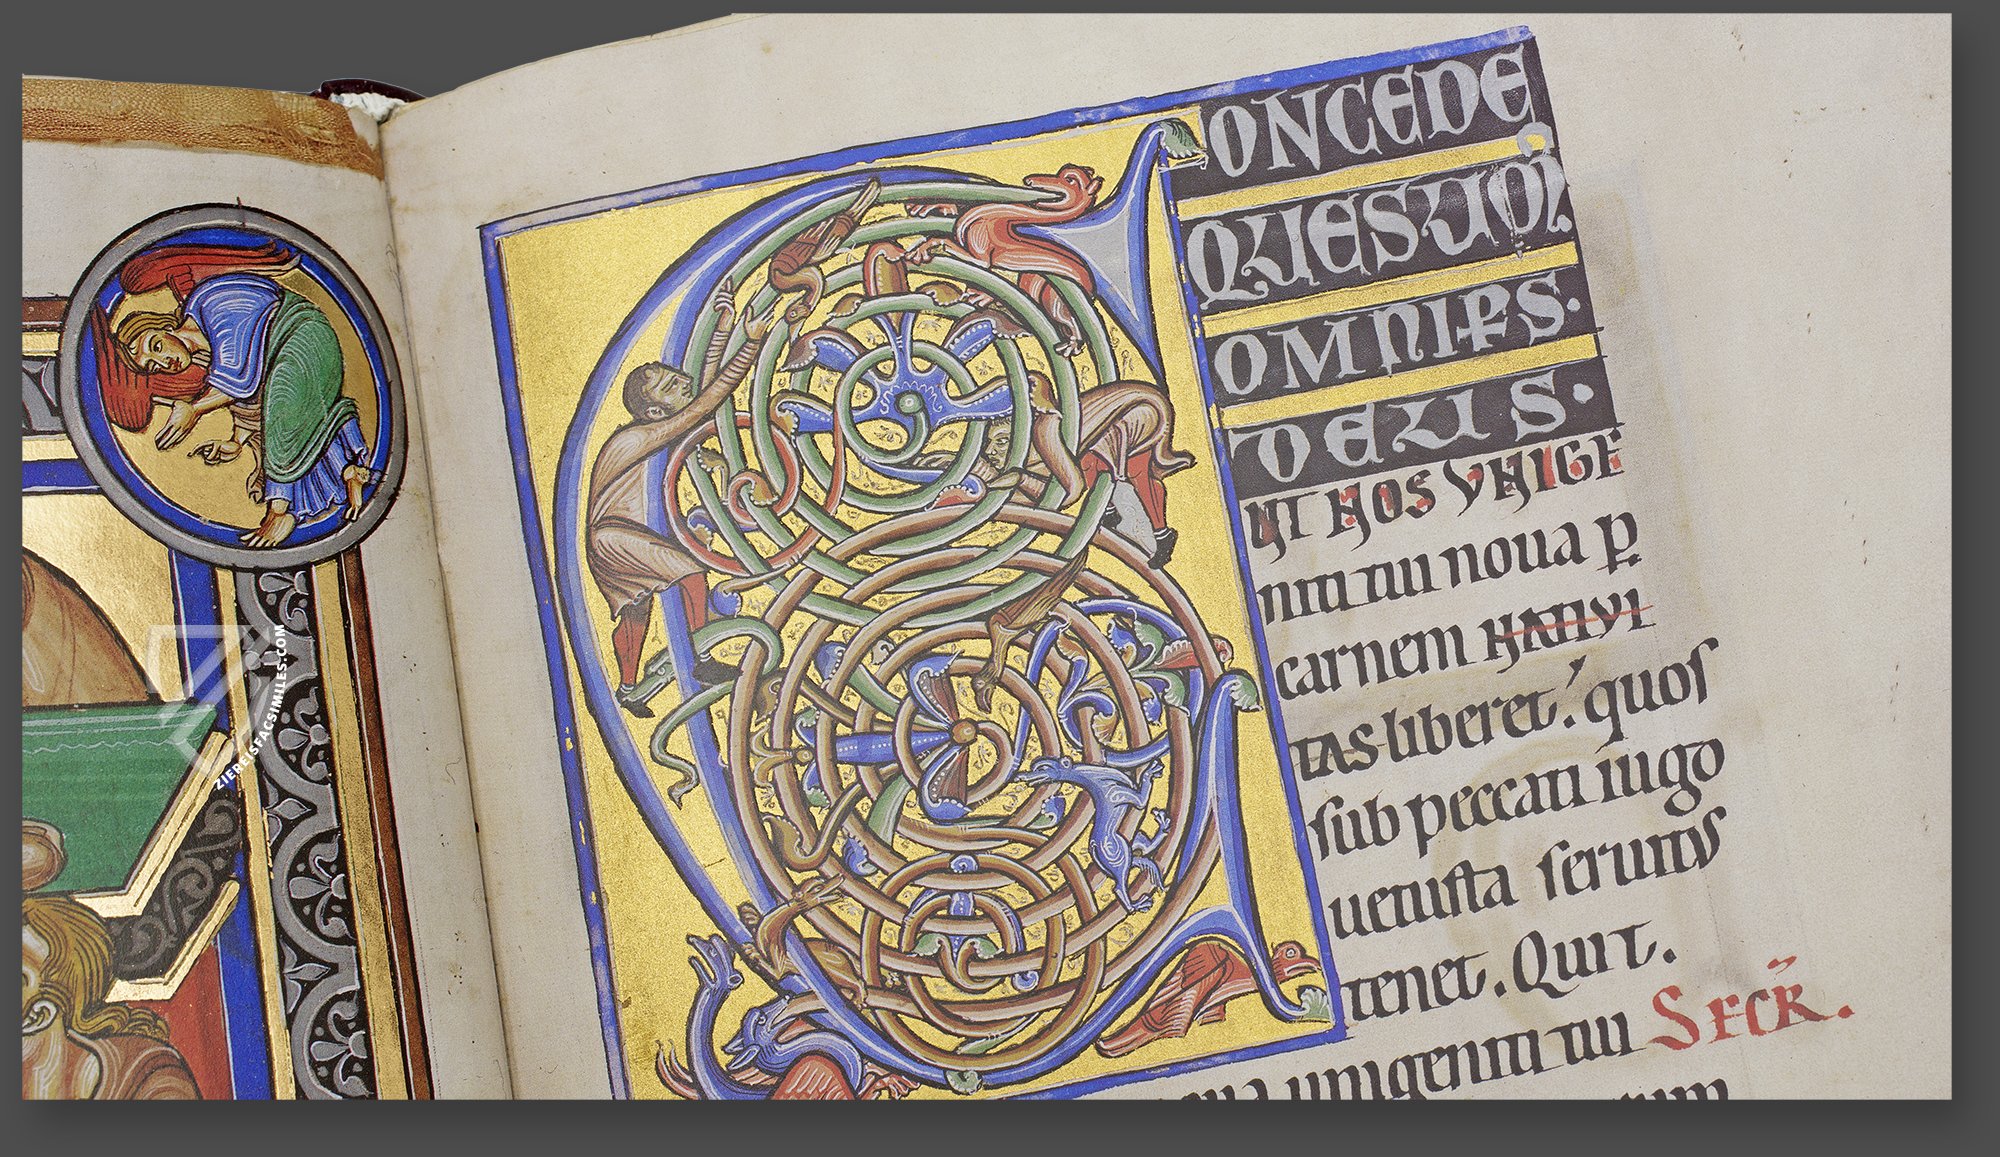 CONCEDE
QUESUM̄
OMNIPS·
DEUS·
UT NOS UNIGE
niti tui noua p̱
carnem NATIVI
TAS liberet; quos
sub peccati iugo
uetusta seruitus
tenet. Qui t.
unigeniti tui SECR̄.
ZIEREISFACSIMILES.COM